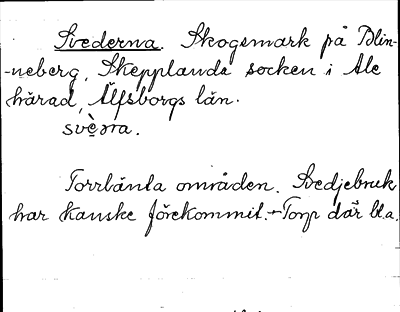 Svederna. Skogsmark på Blin-
-neberg, Skepplanda socken i Ale
härad, Älfsborgs län.
Torrlänta områden. Svedjebruk
har kanske förekommit. - Torp där bl.a.